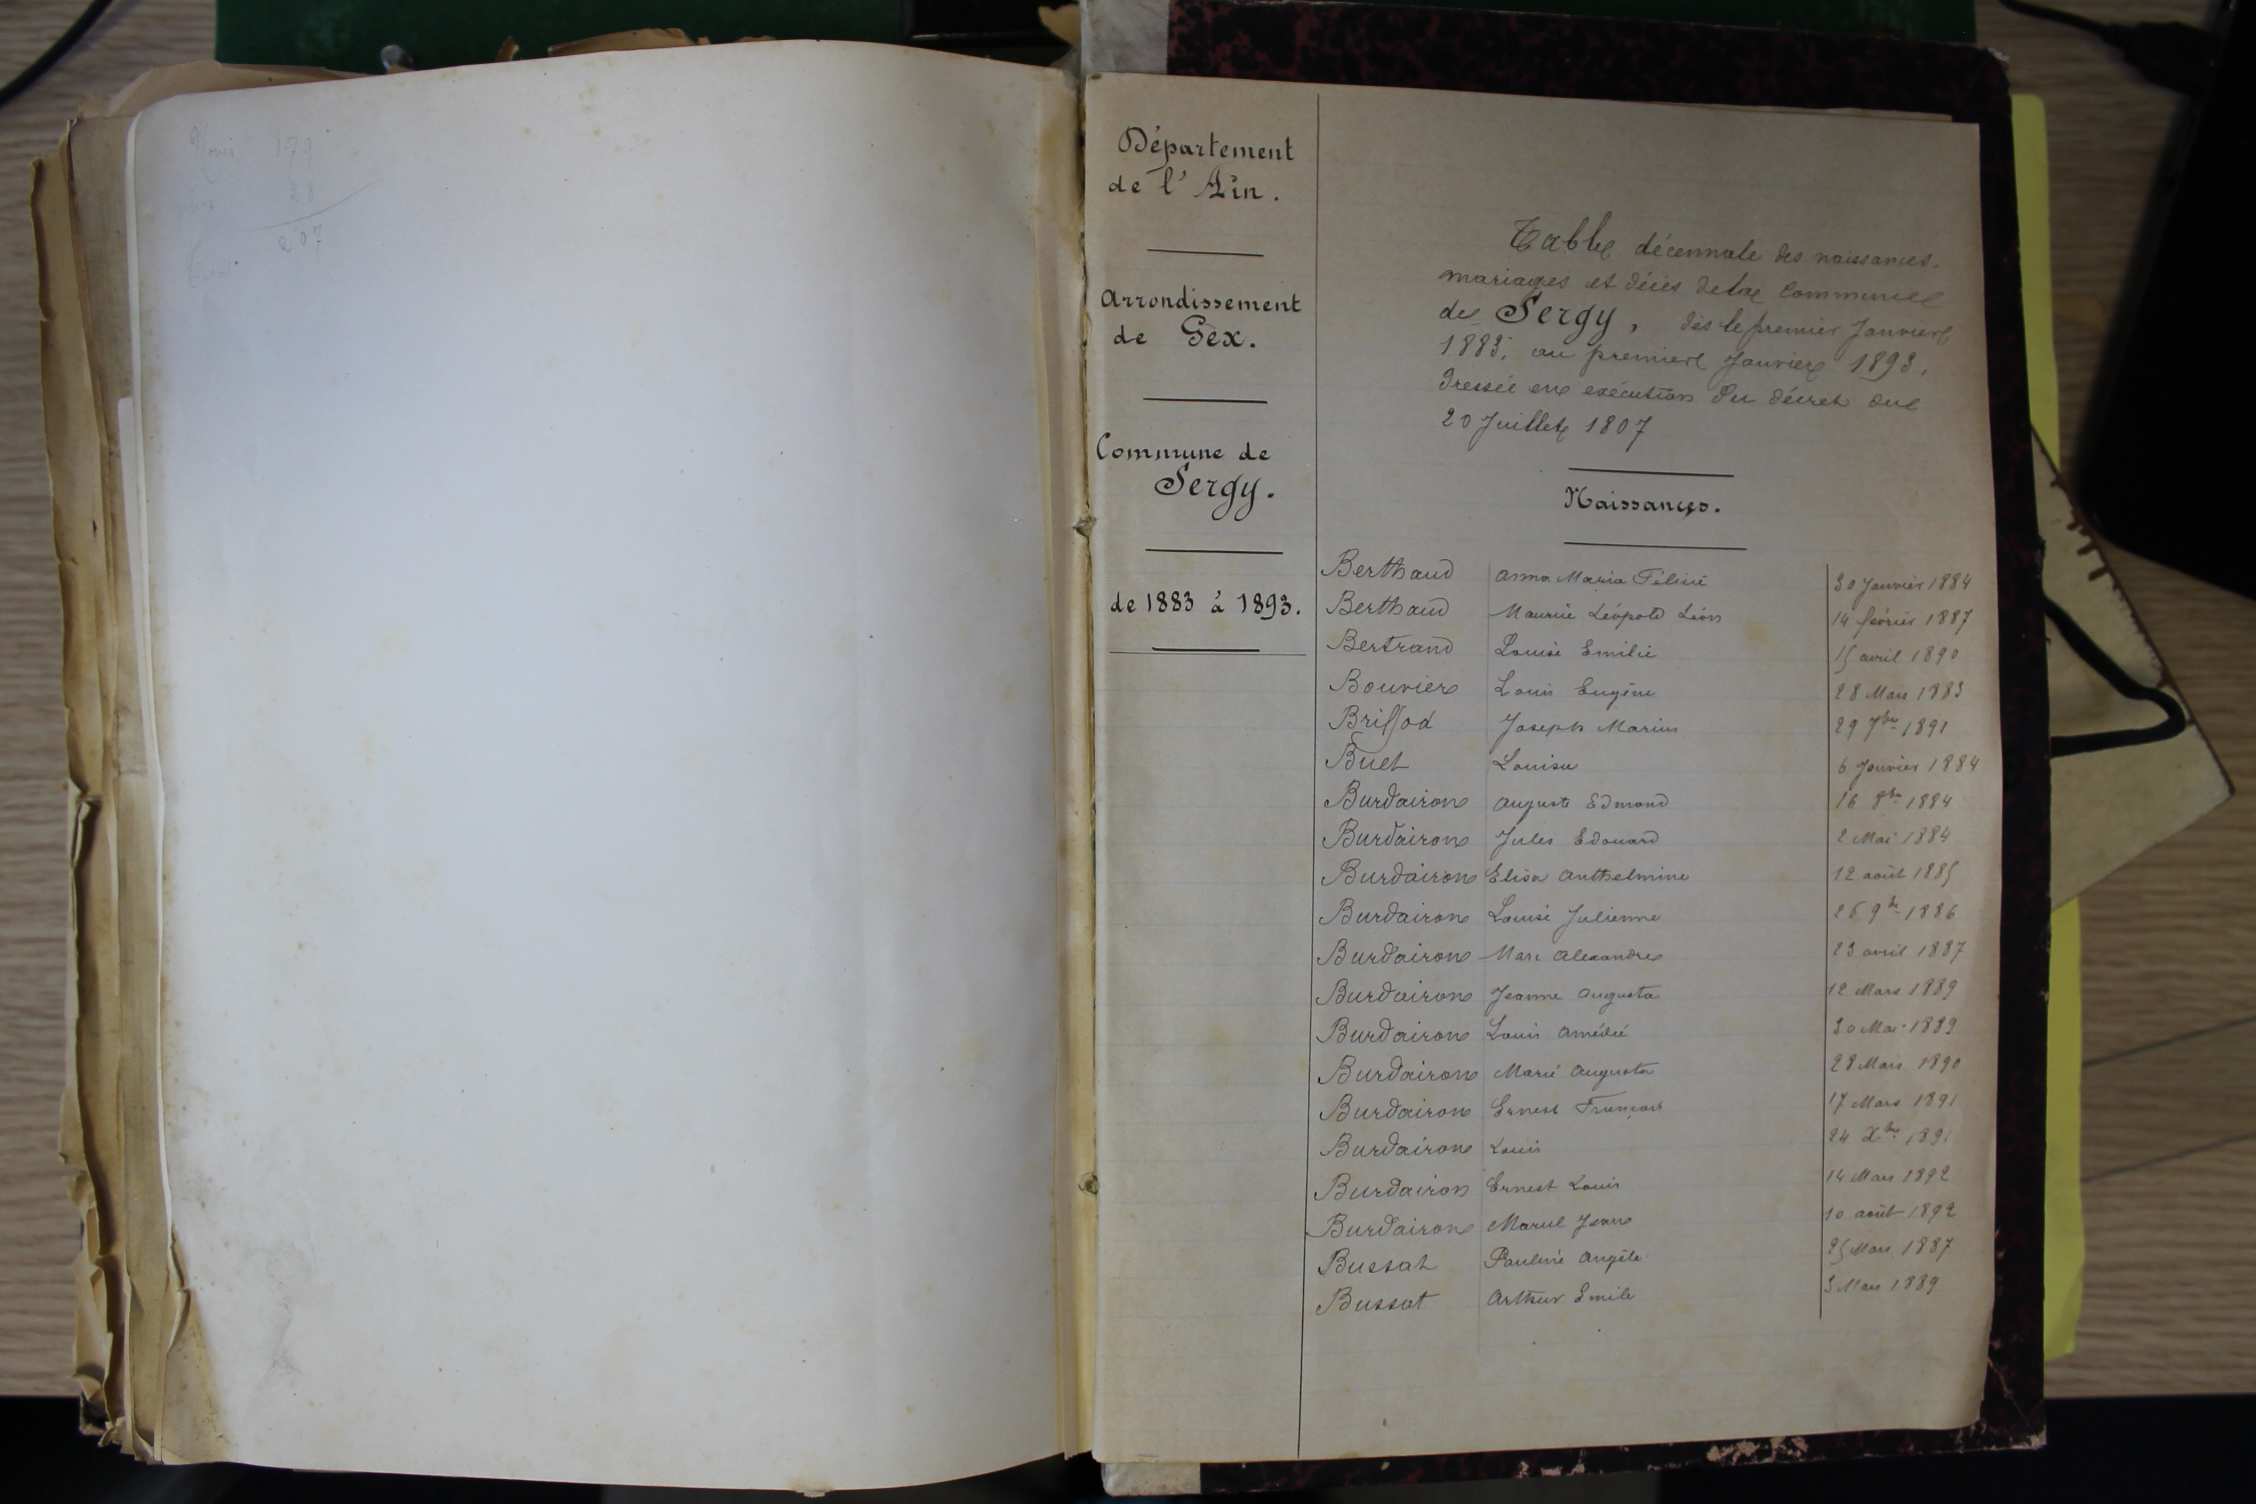 179
28
207
Département
de l'Ain.
Arrondissement
de Gex.
Commune de
Sergy.
de 1883 à 1893.
Table décennale des naissances.
mariages et décès de la Commune
de Sergy, dès le premier Janvier
1883, au premier Janvier 1893.
Dressée en exécution du décret du
20 Juillet 1807
Naissances.
Berthaud Anna Maria Félicie 30 Janvier 1884
Berthaud Maurice Léopold Léon 14 février 1887
Bertrand Louise Emilie 15 avril 1890
Bouvier Louis Eugène 28 Mars 1883
Brissod Joseph Marius 29 7bre 1891
Buet Louise 6 Janvier 1884
Burdairon Auguste Edmond 16 8bre 1884
Burdairon Jules Edouard 2 Mai 1884
Burdairon Elisa Anthelmine 12 août 1885
Burdairon Louise Julienne 26 9bre 1886
Burdairon Marc Alexandre 23 avril 1887
Burdairon Jeanne Augusta 12 Mars 1889
Burdairon Louis Amédée 30 Mai 1889
Burdairon Marie Augusta 28 Mars 1890
Burdairon Ernest François 17 Mars 1891
Burdairon Louis 24 Xbre 1891
Burdairon Ernest Louis 14 Mars 1892
Burdairon Marcel Jean 10 août 1892
Bussat Pauline Angèle 25 Mars 1887
Bussat Arthur Emile 3 Mars 1889